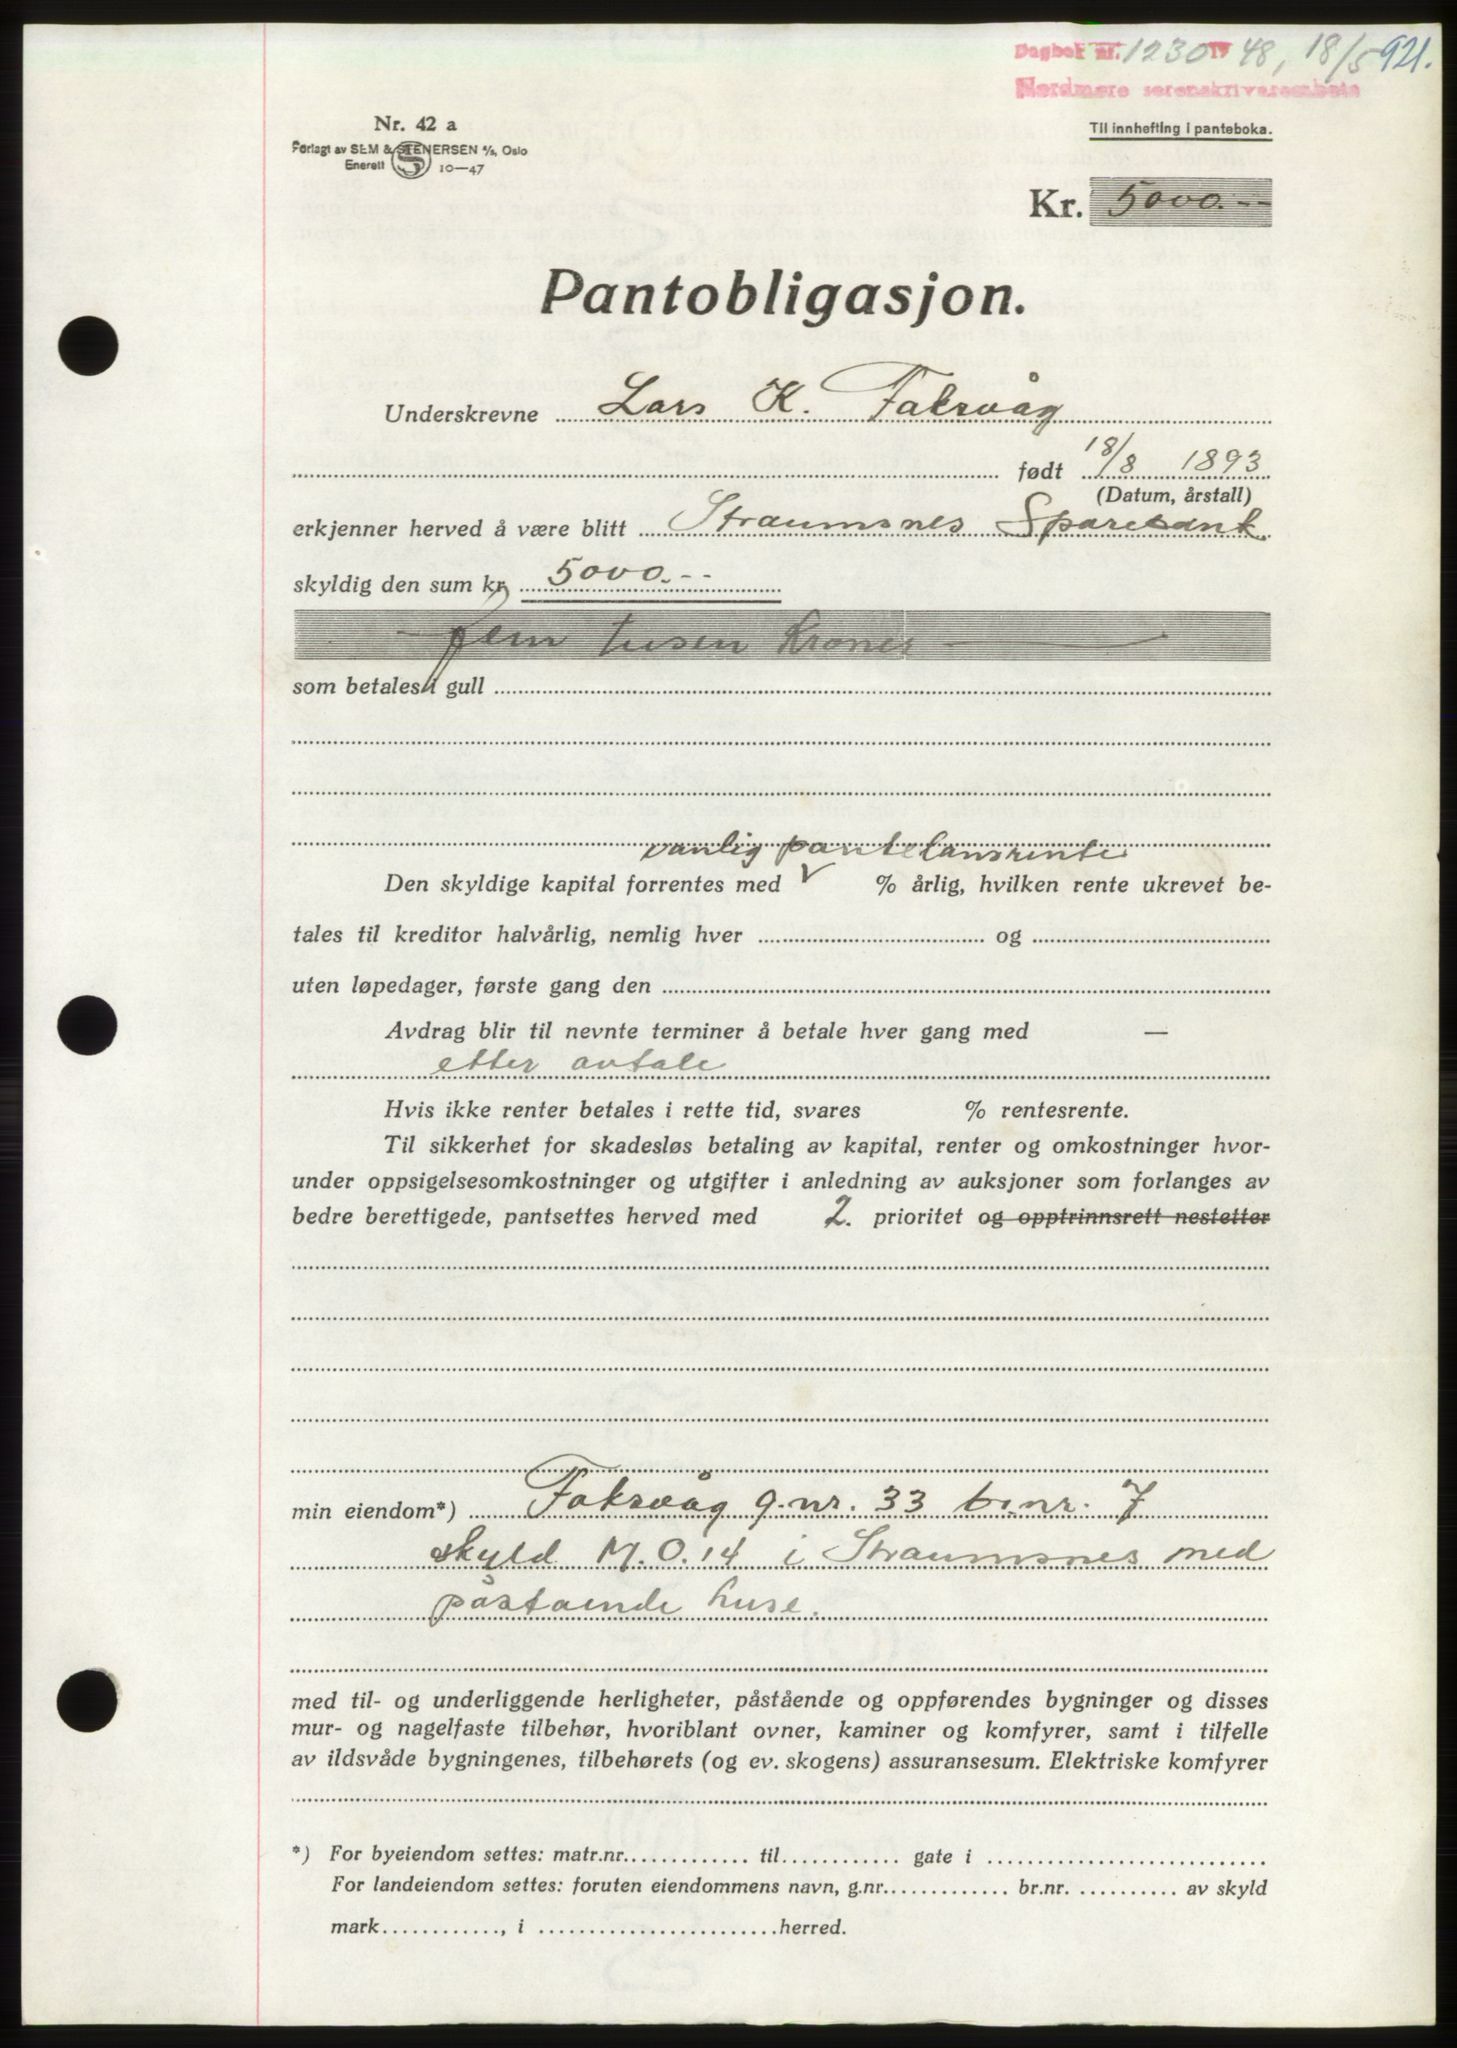 Dagbok nr. 1230 19 48, 18/5 921.
Nordmøre sorenskriverembete
Nr. 42 a
Forlagt av SEM & STENERSEN A/S, Oslo
Enerett S 10—47
Til innhefting i panteboka.
Kr. 5000.--
Pantobligasjon.
Underskrevne Lars K. Faksvåg
født 18/8 1893
(Datum, årstall)
erkjenner herved å være blitt Straumsnes Sparebank
skyldig den sum kr. 5000.--
fem tusen kroner
som betales i gull
vanlig pantelånsrente
Den skyldige kapital forrentes med V % årlig, hvilken rente ukrevet be-
tales til kreditor halvårlig, nemlig hver og
uten løpedager, første gang den
Avdrag blir til nevnte terminer å betale hver gang med —
etter avtale
Hvis ikke renter betales i rette tid, svares % rentesrente.
Til sikkerhet for skadesløs betaling av kapital, renter og omkostninger hvor-
under oppsigelsesomkostninger og utgifter i anledning av auksjoner som forlanges av
bedre berettigede, pantsettes herved med 2. prioritet og opptrinnsrett nestetter
min eiendom*) Faksvåg g.nr. 33 b.nr. 7
skyld M. 0.14 i Straumsnes med
påstående huse.
med til- og underliggende herligheter, påstående og oppførendes bygninger og disses
mur- og nagelfaste tilbehør, hvoriblant ovner, kaminer og komfyrer, samt i tilfelle
av ildsvåde bygningenes, tilbehørets (og ev. skogens) assuransesum. Elektriske komfyrer
*) For byeiendom settes: matr.nr. til gate i
For landeiendom settes: foruten eiendommens navn, g.nr. br.nr. av skyld
mark , i herred.